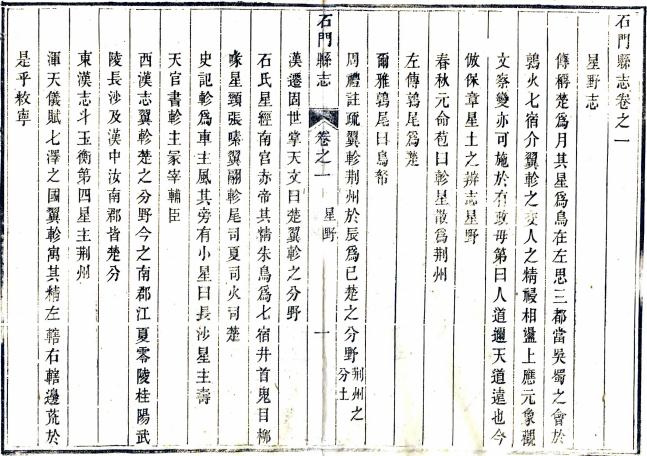 石門縣志卷之一
星野志
傳稱楚爲月其星爲鳥在左思三都當吳蜀之會於
鶉火七宿介翼軫之交人之精祲相盪上應元象觀
文察變亦可施於有政毋第曰人道邇天道遠也今
倣保章星土之辨志星野
春秋元命苞曰軫星散爲荆州
左傳鶉尾爲楚
爾雅鶉尾曰鳥帑
周禮註疏翼軫荆州於辰爲巳楚之分野荆州之分土
石門縣志
卷之一
星野
一
漢遷固世掌天文曰楚翼軫之分野
石氏星經南宮赤帝其精朱鳥爲七宿井首鬼目柳
喙星頸張嗉翼翮軫尾司夏司火司楚
史記軫爲車主風其旁有小星曰長沙星主壽
天官書軫主冢宰輔臣
西漢志翼軫楚之分野今之南郡江夏零陵桂陽武
陵長沙及漢中汝南郡皆楚分
東漢志斗玉衡第四星主荆州
渾天儀賦七澤之國翼軫寓其精左轄右轄邊荒於
是乎敉寧